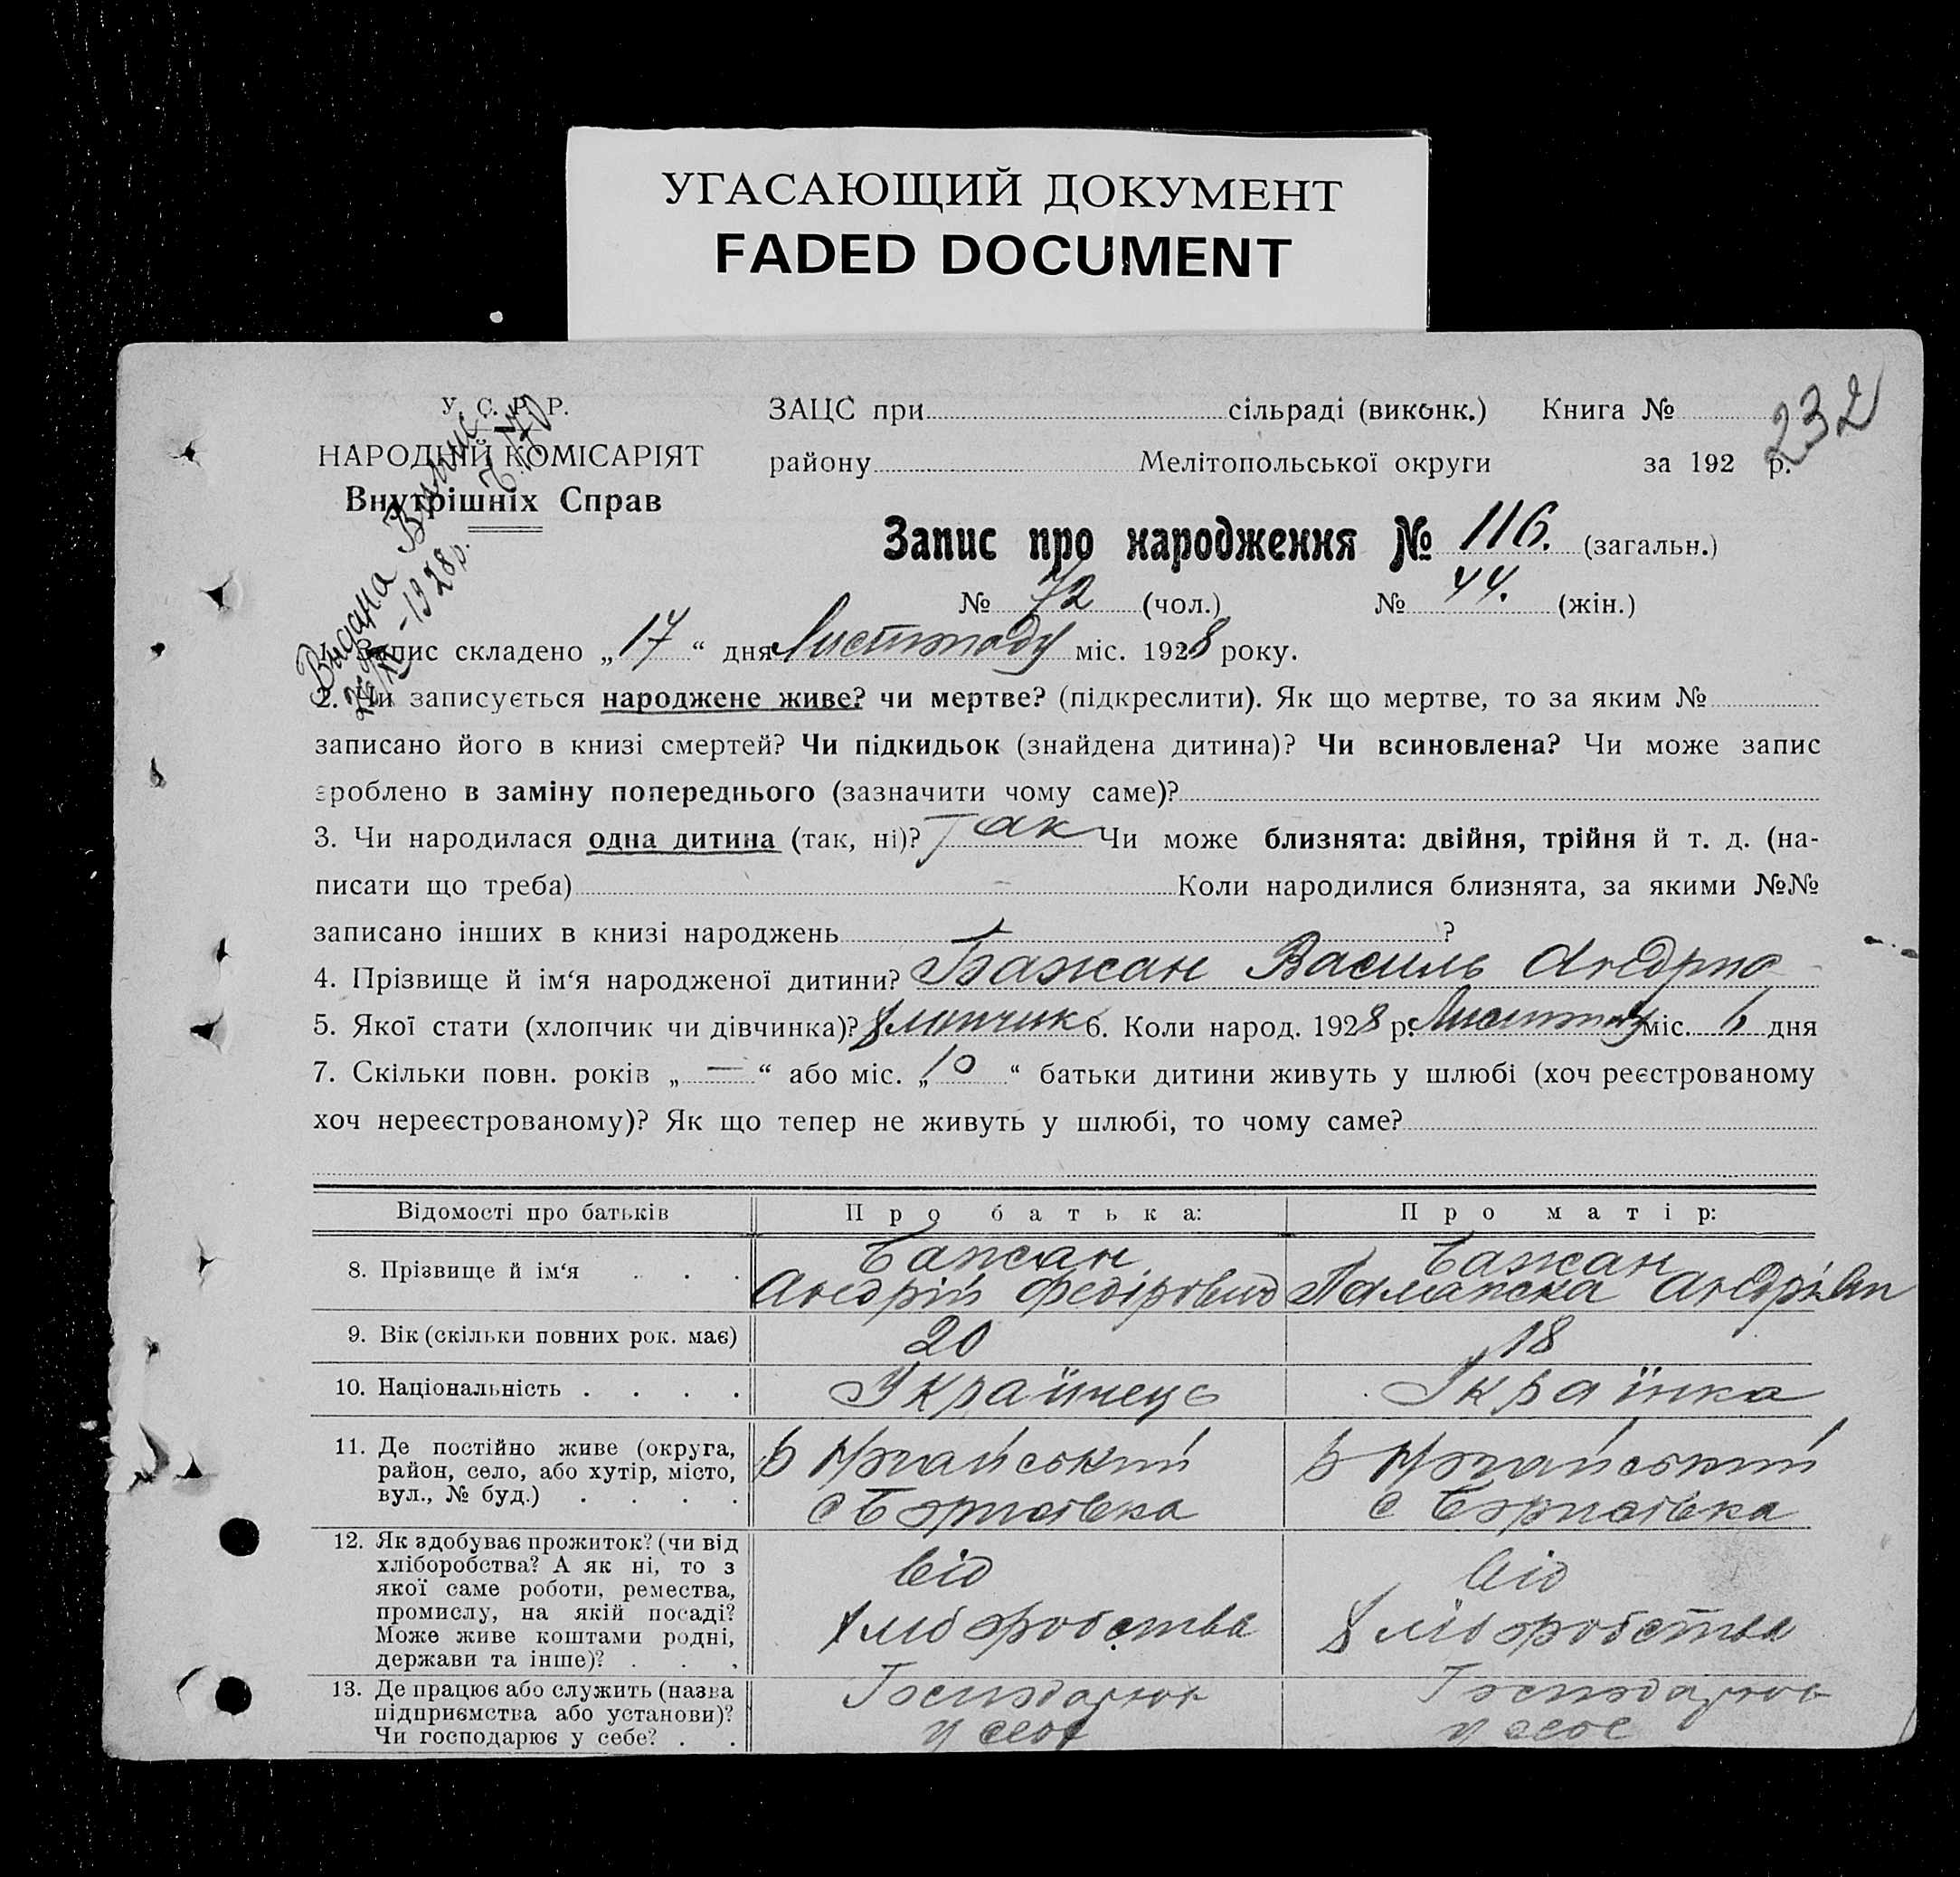 УГАСАЮЩИЙ ДОКУМЕНТ
FADED DOCUMENT
232
У. С. Р. Р.
НАРОДНІЙ КОМІСАРІЯТ
Внутрішніх Справ
Видана Випис
1928р.
ЗАЦС при сільраді (виконк.) Книга №
району Мелітопольської округи за 192 р.
Запис про народження № 116. (загальн.)
№ 72 (чол.) № 44. (жін.)
1. Запис складено „17“ дня Листопаду міс. 1928 року.
2. Чи записується народжене живе? чи мертве? (підкреслити). Як що мертве, то за яким №
записано його в книзі смертей? Чи підкидьок (знайдена дитина)? Чи всиновлена? Чи може запис
зроблено в заміну попереднього (зазначити чому саме)?
3. Чи народилася одна дитина (так, ні)? Так Чи може близнята: двійня, трійня й т. д. (на-
писати що треба) Коли народилися близнята, за якими №№
записано інших в книзі народжень ?
4. Прізвище й ім‘я народженої дитини? Бажан Василь Андрію
5. Якої стати (хлопчик чи дівчинка)? хлипчик 6. Коли народ. 1928 р. Листопаду міс. 6 дня
7. Скільки повн. років „—“ або міс. „10“ батьки дитини живуть у шлюбі (хоч реєстрованому
хоч нереєстрованому)? Як що тепер не живуть у шлюбі, то чому саме?
Відомості про батьків Про батька: Про матір:
8. Прізвище й ім‘я . . . Бажан Бажан
Андрій Федірович
9. Вік (скільки повних рок. має) 20 18
10. Національність . . . . Українець Українка
11. Де постійно живе (округа,
район, село, або хутір, місто,
вул., № буд.) . . . .
12. Як здобуває прожиток? (чи від
хліборобства? А як ні, то з
якої саме роботи, ремества,
промислу, на якій посаді?
Може живе коштами родні,
держави та інше)? . . .
від від
хліборобства хліборобства
13. Де працює або служить (назва
підприємства або установи)?
Чи господарює у себе? . .
Господарює Господарює
у себе у себе